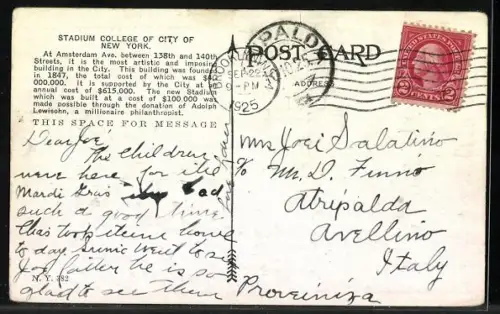 STADIUM COLLEGE OF CITY OF
NEW YORK.
At Amsterdam Ave. between 138th and 140th
Streets, it is the most artistic and imposing
building in the City. This building was founded
in 1847, the total cost of which was
000,000. It is supported by the City at an
annual cost of $615,000. The new Stadium
which was built at a cost of $100,000 was
made possible through the donation of Adolph
Lewisohn, a millionaire philanthropist.
THIS SPACE FOR MESSAGE
POST CARD
ADDRESS
BROOKLYN
SEP 22
9-PM
1925
ATRIPALDA
UNITED STATES POSTAGE
2 CENTS 2
Dear Joe
The children
were here for the
Mardi Gras had
such a good time
Chas took home
to day went to
for father he is so
glad to see them
N. Y. 782
Mrs Joei Salatino
c/o Mr. D. Finno
Atripalda
Avellino
Italy
Proveiniza